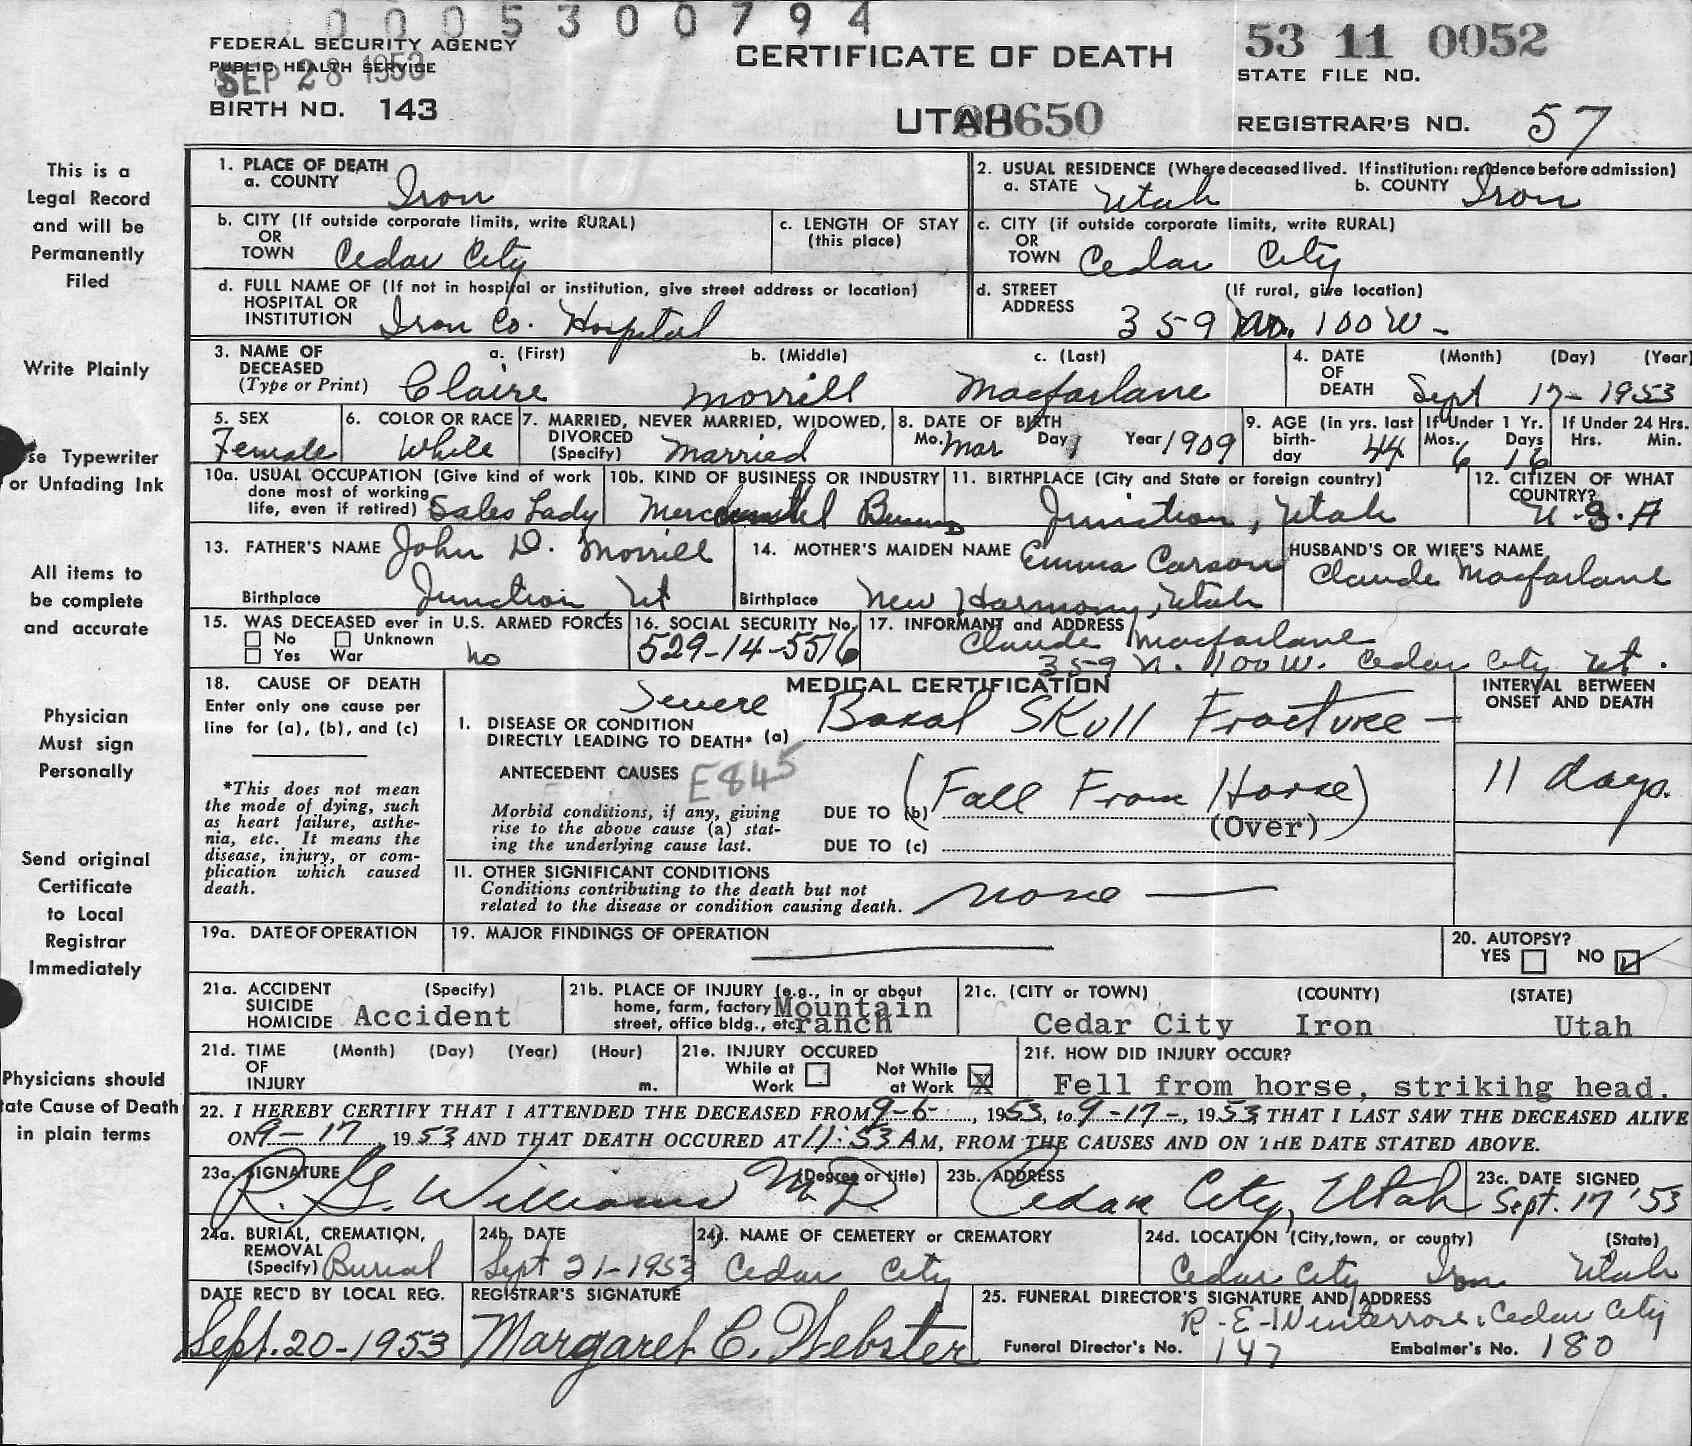 0005300794
FEDERAL SECURITY AGENCY
PUBLIC HEALTH SERVICE
SEP 28 1953
BIRTH NO. 143
CERTIFICATE OF DEATH
UTAH
08650
53 11 0052
STATE FILE NO.
REGISTRAR'S NO. 57
This is a
Legal Record
and will be
Permanently
Filed
Write Plainly
se Typewriter
or Unfading Ink
All items to
be complete
and accurate
Physician
Must sign
Personally
Send original
Certificate
to Local
Registrar
Immediately
Physicians should
tate Cause of Death
in plain terms
1. PLACE OF DEATH
a. COUNTY Iron
2. USUAL RESIDENCE (Where deceased lived. If institution: residence before admission)
a. STATE Utah b. COUNTY Iron
b. CITY (If outside corporate limits, write RURAL)
OR
TOWN Cedar City
c. LENGTH OF STAY
(this place)
c. CITY (if outside corporate limits, write RURAL)
OR
TOWN Cedar City
d. FULL NAME OF (If not in hospital or institution, give street address or location)
HOSPITAL OR
INSTITUTION Iron Co. Hospital
d. STREET (If rural, give location)
ADDRESS 359 No. 100 W.
3. NAME OF a. (First) b. (Middle) c. (Last)
DECEASED
(Type or Print) Claire Morrill Macfarlane
4. DATE (Month) (Day) (Year)
OF
DEATH Sept 17- 1953
5. SEX
Female
6. COLOR OR RACE
White
7. MARRIED, NEVER MARRIED, WIDOWED,
DIVORCED
(Specify) Married
8. DATE OF BIRTH
Mo. Mar Day 1 Year 1909
9. AGE (in yrs. last
birth-
day 44
If Under 1 Yr.
Mos. Days
6 16
If Under 24 Hrs.
Hrs. Min.
10a. USUAL OCCUPATION (Give kind of work
done most of working
life, even if retired) Sales Lady
10b. KIND OF BUSINESS OR INDUSTRY
11. BIRTHPLACE (City and State or foreign country)
Junction, Utah
12. CITIZEN OF WHAT
COUNTRY?
U.S.A
13. FATHER'S NAME John D. Morrill
Birthplace Junction, Ut
14. MOTHER'S MAIDEN NAME Emma Carson
Birthplace New Harmony, Utah
HUSBAND'S OR WIFE'S NAME
Claude Macfarlane
15. WAS DECEASED ever in U.S. ARMED FORCES
No Unknown
Yes War no
16. SOCIAL SECURITY No.
529-14-5516
17. INFORMANT and ADDRESS
Claude Macfarlane
359 N. 100 W. Cedar City Ut.
18. CAUSE OF DEATH
Enter only one cause per
line for (a), (b), and (c)
*This does not mean
the mode of dying, such
as heart failure, asthe-
nia, etc. It means the
disease, injury, or com-
plication which caused
death.
MEDICAL CERTIFICATION
Severe
I. DISEASE OR CONDITION
DIRECTLY LEADING TO DEATH* (a) Basal Skull Fracture
ANTECEDENT CAUSES E845
Morbid conditions, if any, giving
rise to the above cause (a) stat-
ing the underlying cause last.
DUE TO (b) (Fall From Horse)
(Over)
DUE TO (c)
INTERVAL BETWEEN
ONSET AND DEATH
11 days.
11. OTHER SIGNIFICANT CONDITIONS
Conditions contributing to the death but not
related to the disease or condition causing death. none
19a. DATE OF OPERATION
19. MAJOR FINDINGS OF OPERATION
20. AUTOPSY?
YES NO
21a. ACCIDENT (Specify)
SUICIDE
HOMICIDE Accident
21b. PLACE OF INJURY (e.g., in or about
home, farm, factory
street, office bldg., etc.
Mountain
ranch
21c. (CITY or TOWN) (COUNTY) (STATE)
Cedar City Iron Utah
21d. TIME (Month) (Day) (Year) (Hour)
OF
INJURY m.
21e. INJURY OCCURED
While at Work
Not While at Work X
21f. HOW DID INJURY OCCUR?
Fell from horse, strikihg head.
22. I HEREBY CERTIFY THAT I ATTENDED THE DECEASED FROM 9-6-, 1953, to 9-17-, 1953, THAT I LAST SAW THE DECEASED ALIVE
ON 9-17, 1953 AND THAT DEATH OCCURED AT 11:53 AM, FROM THE CAUSES AND ON THE DATE STATED ABOVE.
23a. SIGNATURE (Degree or title)
R. G. Williams M.D.
23b. ADDRESS
Cedar City, Utah
23c. DATE SIGNED
Sept. 17 '53
24a. BURIAL, CREMATION,
REMOVAL
(Specify) Burial
24b. DATE
Sept 21-1953
24c. NAME OF CEMETERY or CREMATORY
Cedar City
24d. LOCATION (City, town, or county) (State)
Cedar City Iron Utah
DATE REC'D BY LOCAL REG.
Sept. 20-1953
REGISTRAR'S SIGNATURE
Margaret C. Webster
25. FUNERAL DIRECTOR'S SIGNATURE AND ADDRESS
R-E-Winterrose, Cedar City
Funeral Director's No. 147 Embalmer's No. 180